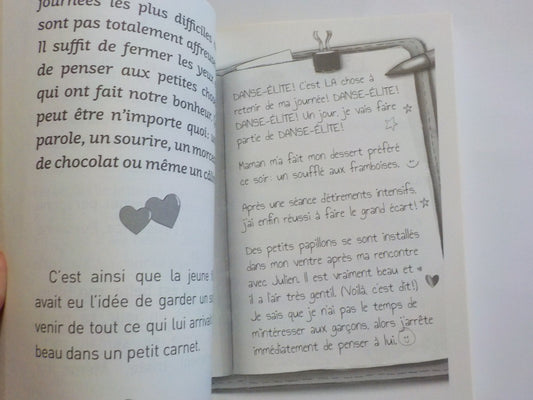 journées les plus difficiles
sont pas totalement affreuses
Il suffit de fermer les yeux
de penser aux petites choses
qui ont fait notre bonheur.
peut être n'importe quoi: une
parole, un sourire, un morceau
de chocolat ou même un
C'est ainsi que la jeune
avait eu l'idée de garder un sou-
venir de tout ce qui lui arrivait
beau dans un petit carnet.
DANSE-ÉLITE! C'est LA chose à
retenir de ma journée! DANSE-ÉLITE!
DANSE-ÉLITE! Un jour, je vais faire
partie de DANSE-ÉLITE!
Maman m'a fait mon dessert préféré
ce soir: un soufflé aux framboises.
Après une séance d'étirements intensifs,
j'ai enfin réussi à faire le grand écart!
Des petits papillons se sont installés
dans mon ventre après ma rencontre
avec Julien. Il est vraiment beau et
il a l'air très gentil. (Voilà, c'est dit!)
Je sais que je n'ai pas le temps de
m'intéresser aux garçons, alors j'arrête
immédiatement de penser à lui.